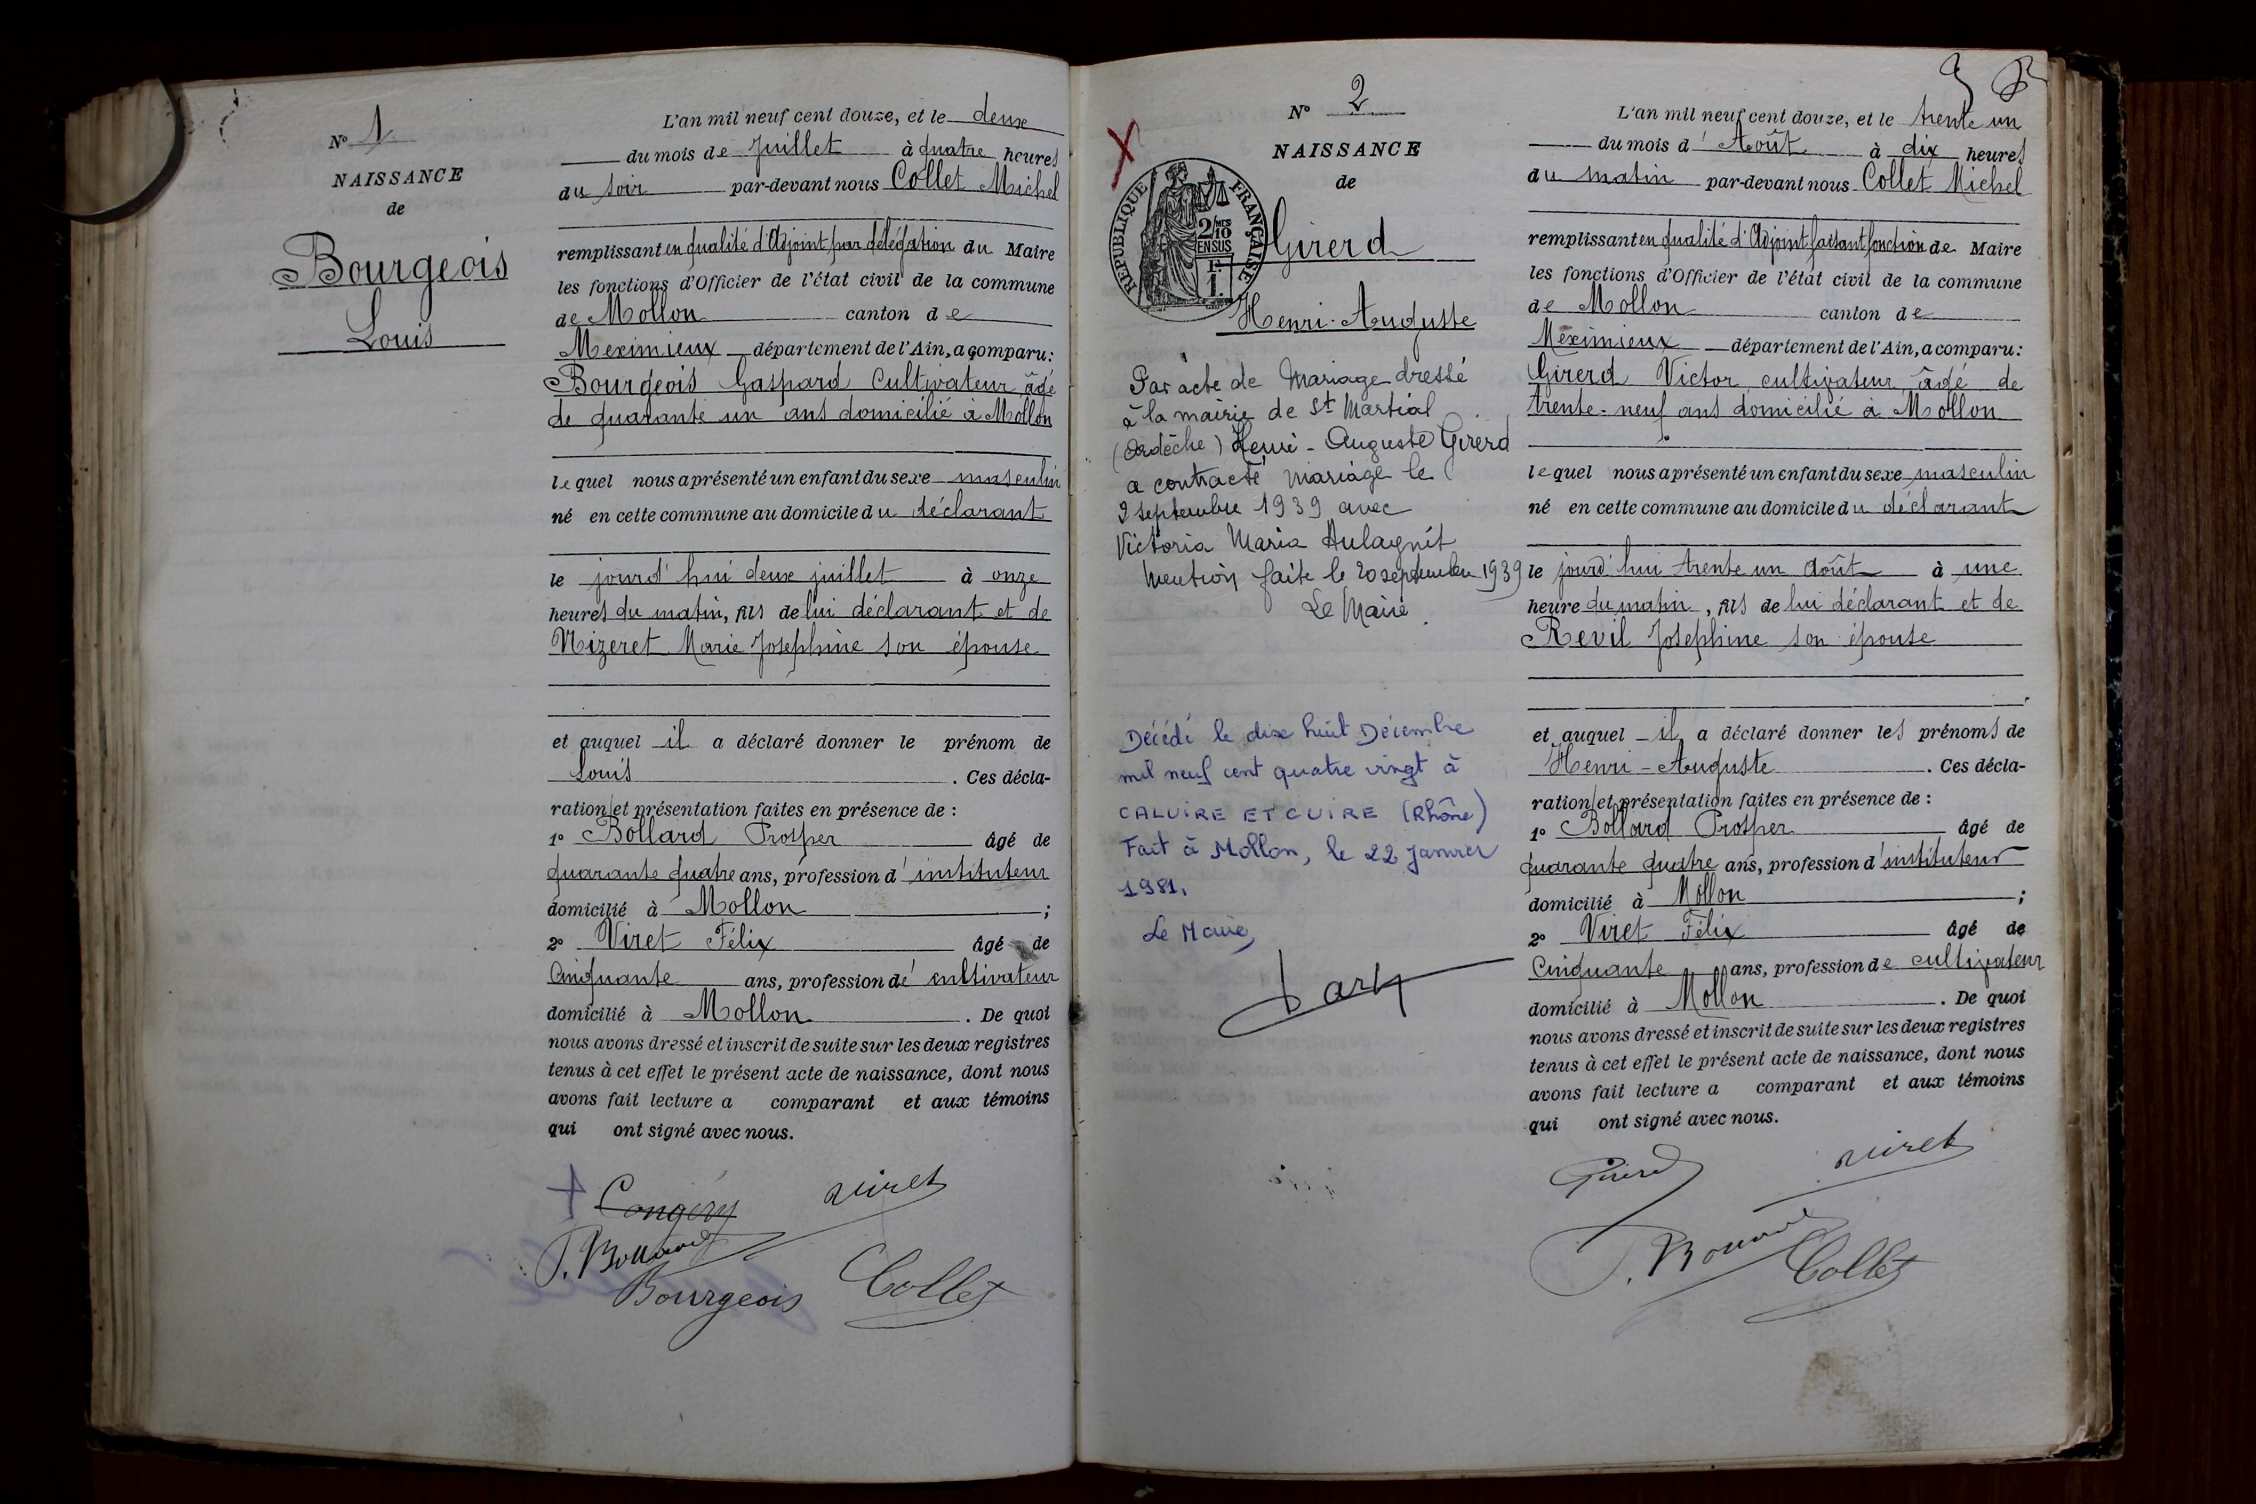 N° 1
NAISSANCE
de
Bourgeois
Louis
L'an mil neuf cent douze, et le deux
du mois de Juillet à quatre heures
du soir par-devant nous Collet Michel
remplissant en qualité d'Adjoint par délégation du Maire
les fonctions d'Officier de l'état civil de la commune
de Mollon canton de
Meximieux département de l'Ain, a comparu :
Bourgeois Gaspard Cultivateur âgé
de quarante un ans domicilié à Mollon
lequel nous a présenté un enfant du sexe masculin
né en cette commune au domicile du déclarant
le jourd'hui deux juillet à onze
heures du matin, fils de lui déclarant et de
Nizeret Marie Joséphine son épouse
et auquel il a déclaré donner le prénom de
Louis. Ces décla-
ration et présentation faites en présence de :
1° Bollard Prosper âgé de
quarante quatre ans, profession d'instituteur
domicilié à Mollon ;
2° Viret Félix âgé de
Cinquante ans, profession de cultivateur
domicilié à Mollon. De quoi
nous avons dressé et inscrit de suite sur les deux registres
tenus à cet effet le présent acte de naissance, dont nous
avons fait lecture a comparant et aux témoins
qui ont signé avec nous.
viret
P. Bollard
Bourgeois Collet
N° 2
NAISSANCE
de
REPUBLIQUE FRANÇAISE
2/10
EN SUS
Girerd
Henri-Auguste
Par acte de Mariage dressé
à la mairie de St Martial
(Ardèche) Henri-Auguste Girerd
a contracté mariage le
2 septembre 1939 avec
Victoria Maria Aulagnit
Mention faite le 20 septembre 1939
Le Maire.
Décédé le dix huit Décembre
mil neuf cent quatre vingt à
CALUIRE ET CUIRE (Rhône)
Fait à Mollon, le 22 janvier
1981.
Le Maire,
L'an mil neuf cent douze, et le trente un
du mois d'Août à dix heures
du matin par-devant nous Collet Michel
remplissant en qualité d'Adjoint faisant fonction de Maire
les fonctions d'Officier de l'état civil de la commune
de Mollon canton de
Méximieux département de l'Ain, a comparu :
Girerd Victor cultivateur âgé de
trente-neuf ans domicilié à Mollon
lequel nous a présenté un enfant du sexe masculin
né en cette commune au domicile du déclarant
le jourd'hui trente un août à une
heure du matin, fils de lui déclarant et de
Revil Joséphine son épouse
et auquel il a déclaré donner les prénoms de
Henri-Auguste. Ces décla-
ration et présentation faites en présence de :
1° Bollard Prosper âgé de
quarante quatre ans, profession d'instituteur
domicilié à Mollon ;
2° Viret Félix âgé de
Cinquante ans, profession de cultivateur
domicilié à Mollon. De quoi
nous avons dressé et inscrit de suite sur les deux registres
tenus à cet effet le présent acte de naissance, dont nous
avons fait lecture a comparant et aux témoins
qui ont signé avec nous.
Girerd viret
P. Bollard Collet